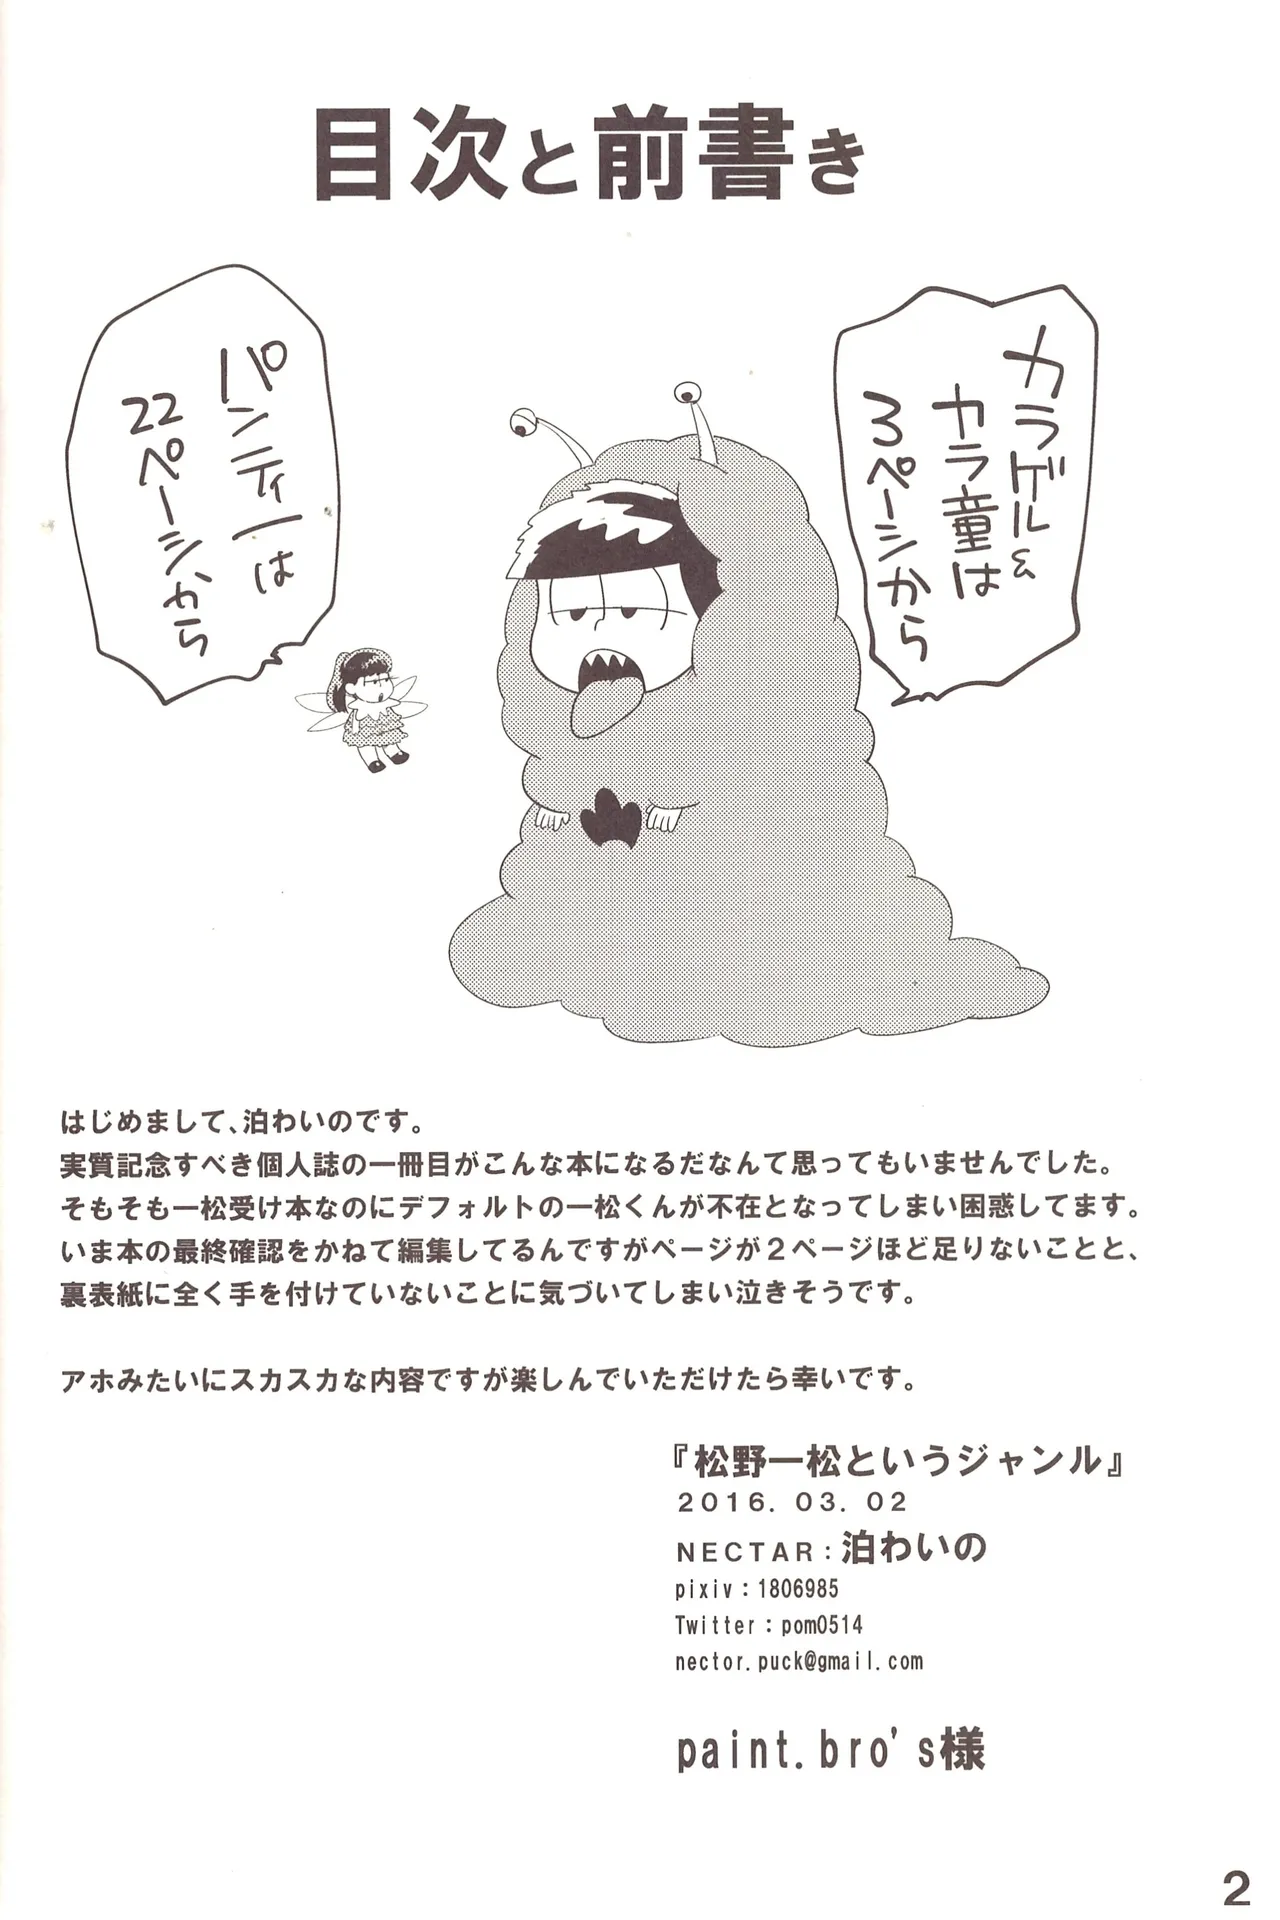 目次と前書き
カラゲル&
カラ童は
3ページから
パンティーは
22ページから
はじめまして、泊わいのです。
実質記念すべき個人誌の一冊目がこんな本になるだなんて思ってもいませんでした。
そもそも一松受け本なのにデフォルトの一松くんが不在となってしまい困惑してます。
いま本の最終確認をかねて編集してるんですがページが2ページほど足りないことと、
裏表紙に全く手を付けていないことに気づいてしまい泣きそうです。
アホみたいにスカスカな内容ですが楽しんでいただけたら幸いです。
『松野一松というジャンル』
2016. 03. 02
NECTAR：泊わいの
pixiv：1806985
Twitter：pom0514
nector.puck@gmail.com
paint.bro's様
2